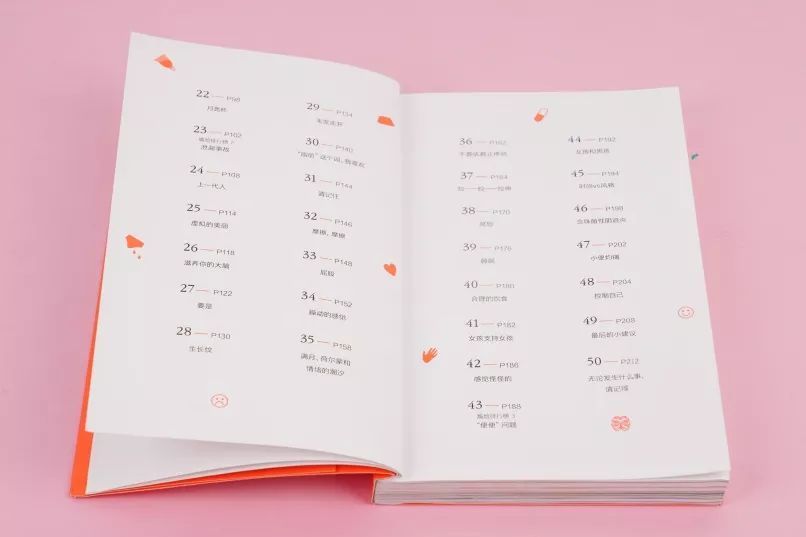 22 — P98
月亮杯
23 — P102
尴尬排行榜 2
泄漏事故
24 — P108
上一代人
25 — P114
虚拟的美丽
26 — P118
滋养你的大脑
27 — P122
要是
28 — P130
生长纹
29 — P134
毛发走开
30 — P140
“脂肪”这个词，我喜欢
31 — P144
请记住
32 — P146
摩擦，摩擦
33 — P148
屁股
34 — P152
躁动的感觉
35 — P158
满月、荷尔蒙和
情绪的潮汐
36 — P162
不要依赖止疼药
37 — P164
38 — P170
39 — P176
睡眠
40 — P180
合理的饮食
41 — P182
女孩支持女孩
42 — P186
感觉怪怪的
43 — P188
尴尬排行榜 3
“便便”问题
44 — P192
女孩和男孩
45 — P194
时尚vs风格
46 — P198
念珠菌性阴道炎
47 — P202
小便灼痛
48 — P204
拉黑自己
49 — P208
最后的小建议
50 — P212
无论发生什么事，
请记得